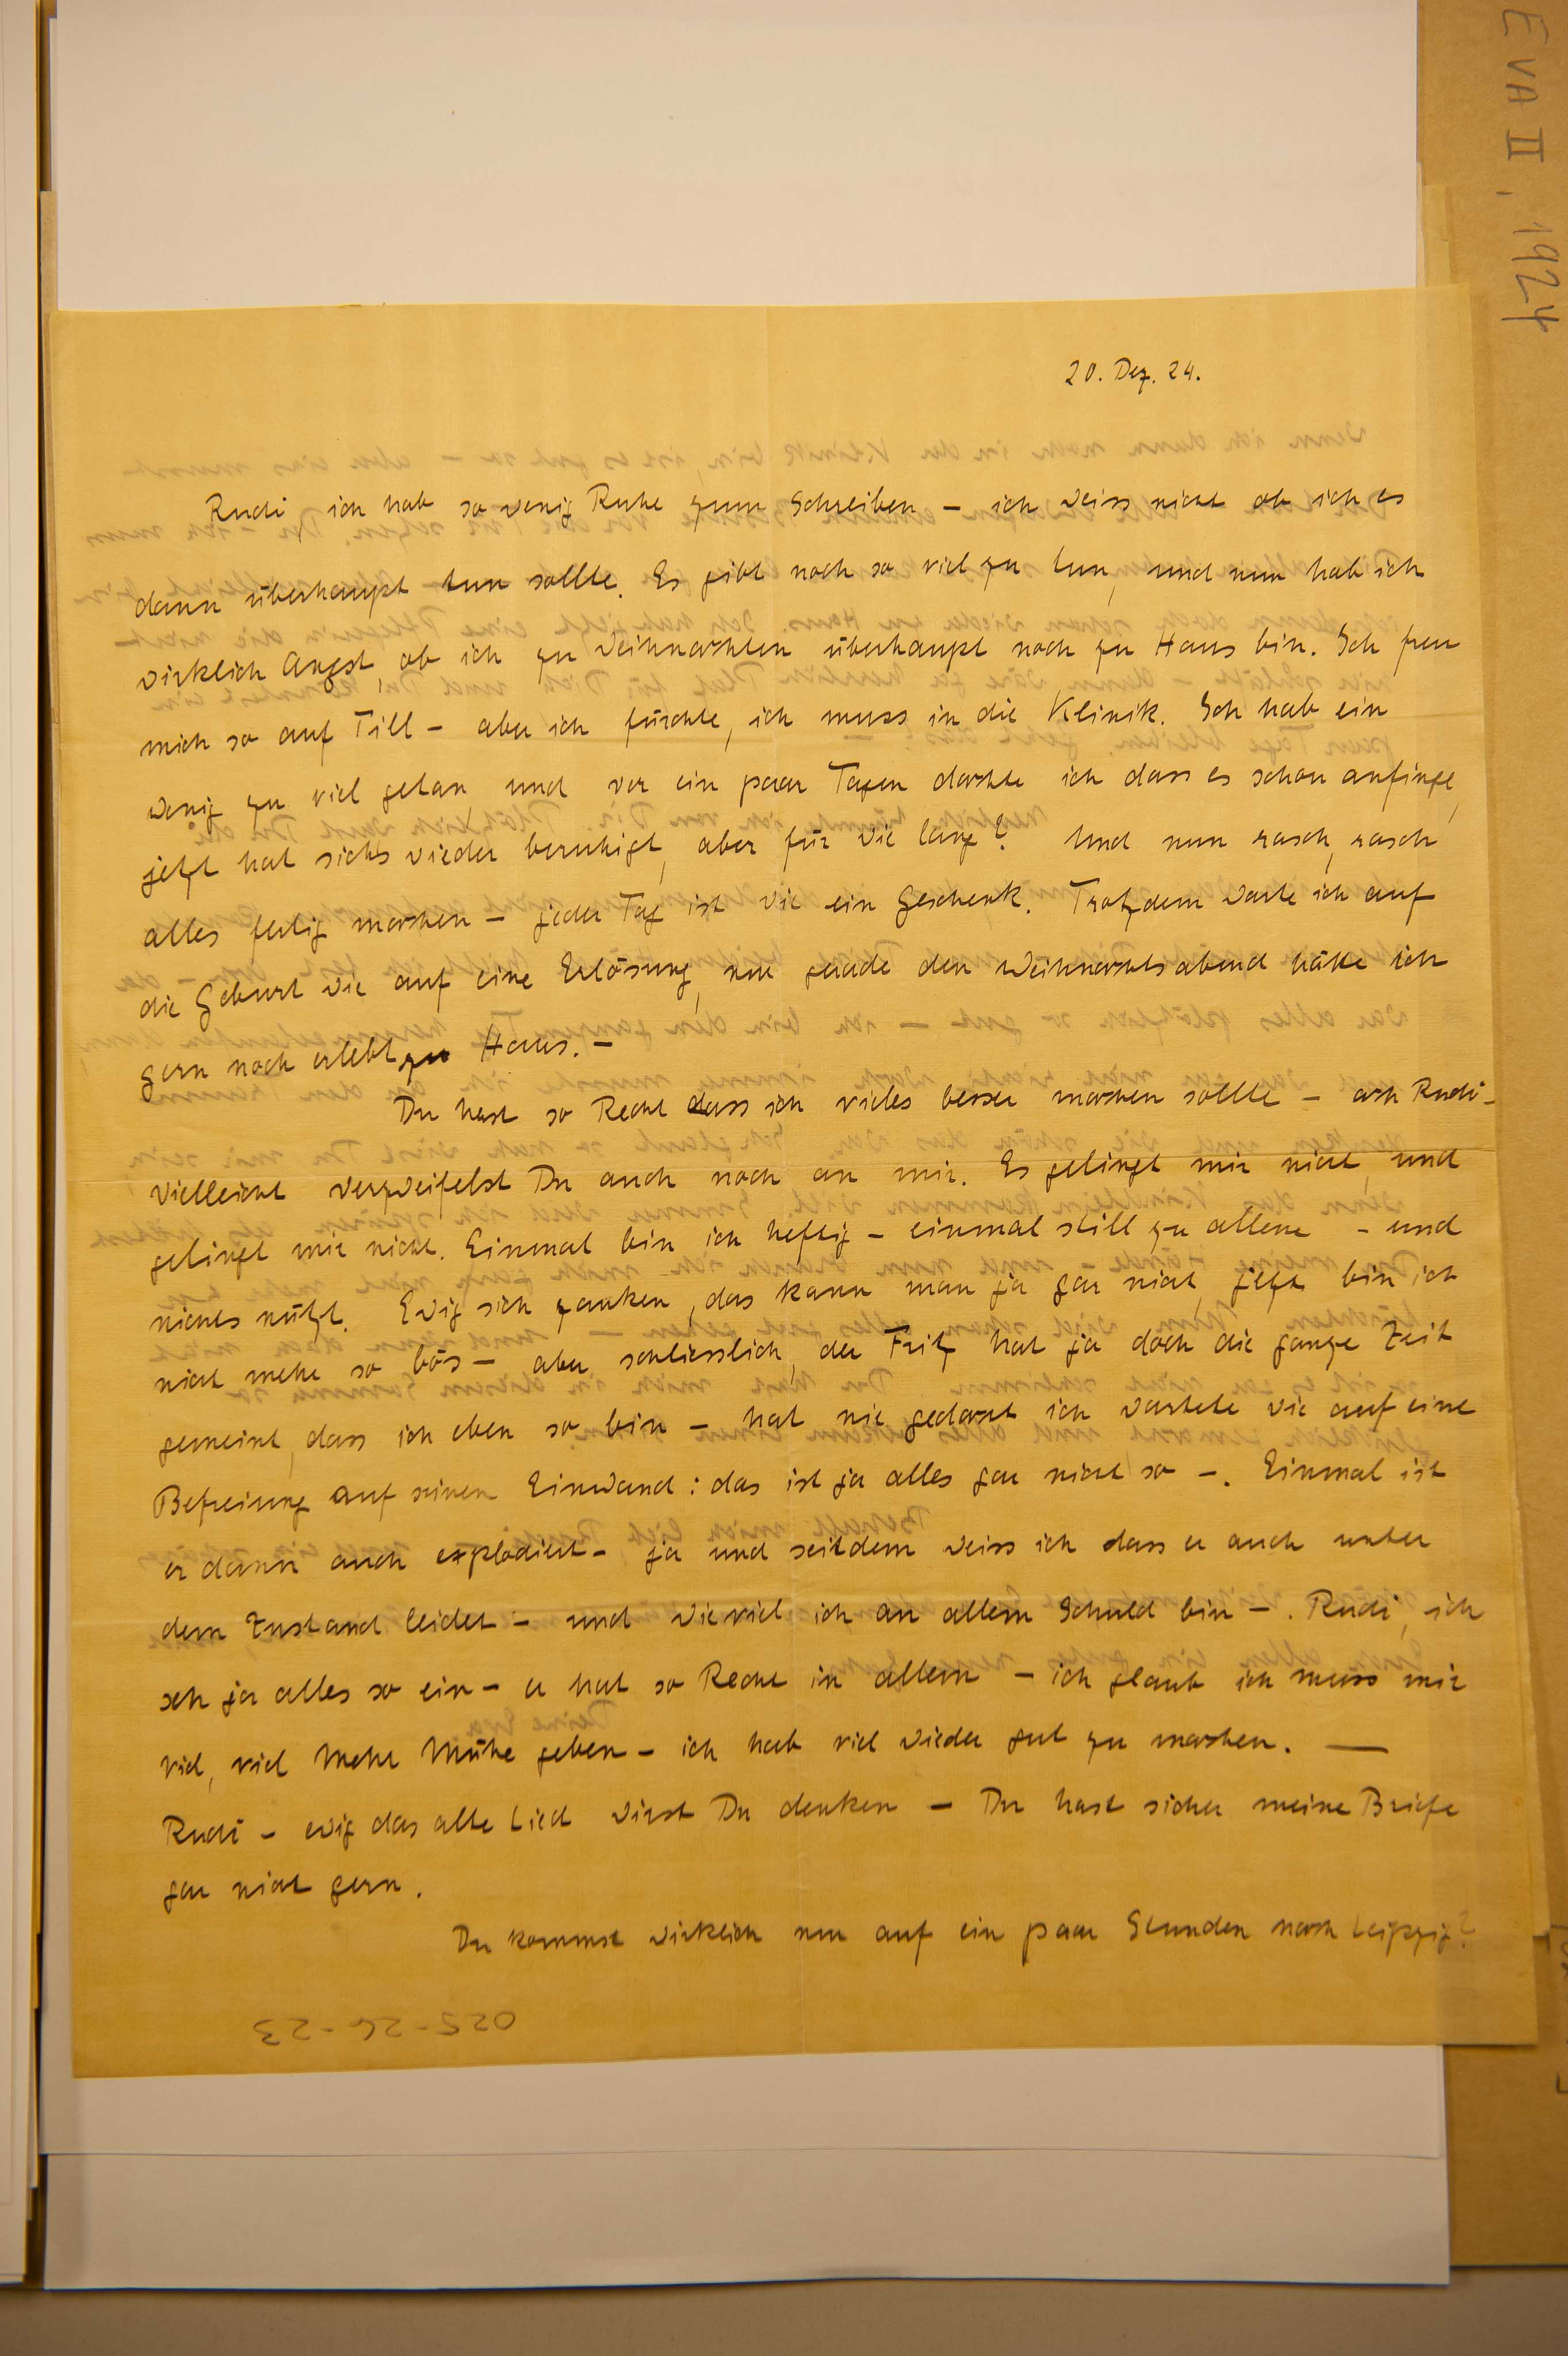 EVA II, 1924
20. Dez. 24.
Rudi ich hab so wenig Ruhe zum Schreiben – ich weiss nicht ob ich es
dann überhaupt tun sollte. Es gibt noch so viel zu tun, und nun hab ich
wirklich Angst, ob ich zu Weihnachten überhaupt noch zu Haus bin. Ich freu
mich so auf Till – aber ich fürchte, ich muss in die Klinik. Ich hab ein
wenig zu viel getan, und vor ein paar Tagen dachte ich dass es schon anfinge,
jetzt hat sichs wieder beruhigt, aber für wie lang? Und nun rasch, rasch
alles fertig machen – jeder Tag ist wie ein Geschenk. Trotzdem warte ich auf
die Geburt wie auf eine Erlösung, nur gerade den Weihnachtsabend hätte ich
gern noch erlebt zu Haus. –
Du hast so Recht dass ich vieles besser machen sollte – ach Rudi –
vielleicht verzweifelst Du auch noch an mir. Es gelingt mir nicht, und
gelingt mir nicht. Einmal bin ich heftig – einmal still zu allem – und
nichts nützt. Ewig sich zanken, das kann man ja gar nicht, jetzt bin ich
nicht mehr so bös – aber schliesslich, der Fritz hat ja doch die ganze Zeit
gemeint, dass ich eben so bin – hat nie gedacht ich wartete wie auf eine
Befreiung auf seinen Einwand: das ist ja alles gar nicht so –. Einmal ist
er dann auch explodiert – ja und seitdem weiss ich dass er auch unter
dem Zustand leidet – und wieviel ich an allem Schuld bin –. Rudi, ich
seh ja alles so ein – er hat so Recht in allem – ich glaub ich muss mir
viel, viel mehr Mühe geben – ich hab viel wieder gut zu machen. —
Rudi – ewig das alte Lied wirst Du denken – Du hast sicher meine Briefe
gar nicht gern.
Du kommst wirklich nur auf ein paar Stunden nach Leipzig?
025-26-23